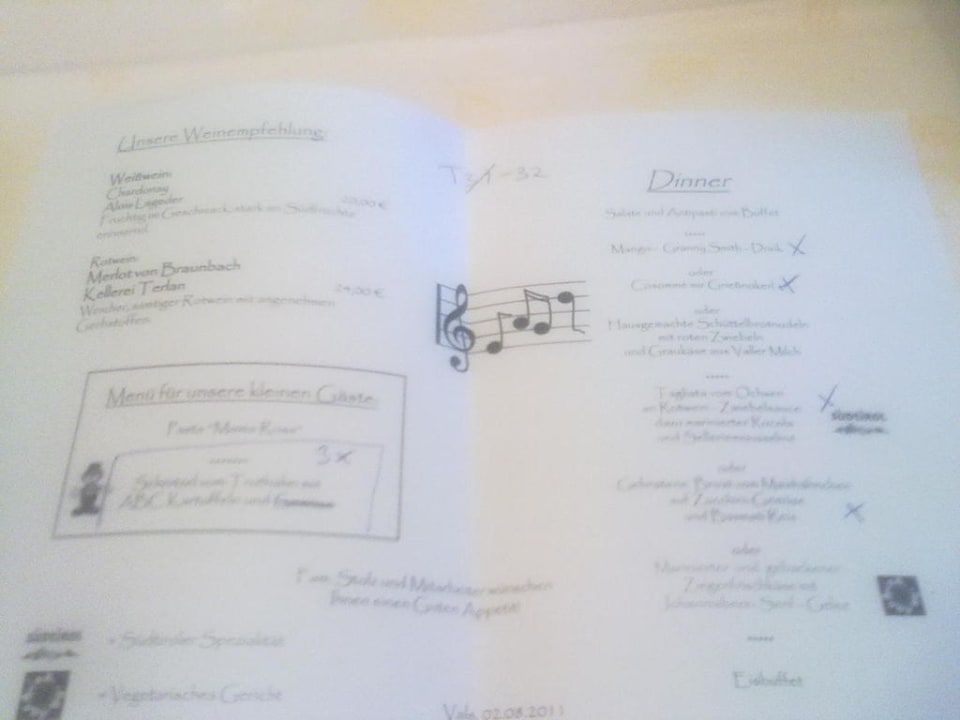 Unsere Weinempfehlung:
Weißwein:
Chardonay
Alois Lageder
20,00 €
Fruchtig im Geschmack, stark an Südfrüchte
erinnernd
Rotwein:
Merlot von Braunbach
Kellerei Terlan
24,00 €
Weicher, samtiger Rotwein mit angenehmen
Gerbstoffen
Menü für unsere kleinen Gäste
Pasta "Monte Rosa"
3x
Schnitzel vom Truthahn mit
ABC Kartoffeln und
Fam. Stolz und Mitarbeiter wünschen
Ihnen einen Guten Appetit!
= Südtiroler Spezialität
= Vegetarisches Gericht
-32
Dinner
Salate und Antipasti vom Buffet
Mango - Granny Smith - Drink X
oder
mit Grießnockerl X
oder
Hausgemachte Schüttelbrotnudeln
mit roten Zwiebeln
und Graukäse aus Valler Milch
Tagliata vom Ochsen X
an Rotwein - Zwiebelsauce
dazu marinierter Rucola
und
oder
Gebratene Brust vom Maishähnchen
auf Zucchini Gemüse
und Basmati Reis X
oder
Marinierter und gebackener
Ziegenfrischkäse mit
Johannisbeer - Senf - Gelee
Eisbuffet
Vals, 02.08.2011